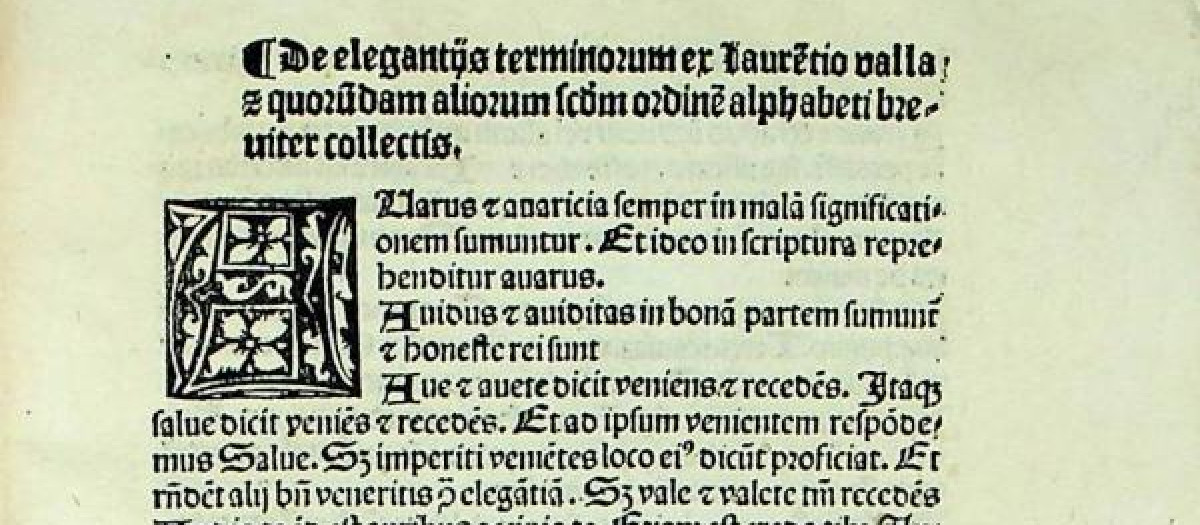 ¶De elegantijs terminorum ex Laurẽtio valla:
⁊ quorũdam aliorum scđm ordinẽ alphabeti bre⸗
uiter collectis.
AUarus ⁊ auaricia semper in malã significati⸗
onem sumuntur. Et ideo in scriptura repre⸗
henditur auarus.
Auidus ⁊ auiditas in bonã partem sumunt̃
⁊ honeste rei sunt
Aue ⁊ auete dicit veniens ⁊ recedẽs. Itaqꝫ
salue dicit veniẽs ⁊ recedẽs. Et ad ipsum venientem respõde⸗
mus Salue. Sꝫ imperiti veniẽtes loco eiꝰ dicũt proficiat. Et
rñdẽt alij bñ veneritis ꝓ elegãtiã. Sꝫ vale ⁊ valete tñ recedẽs